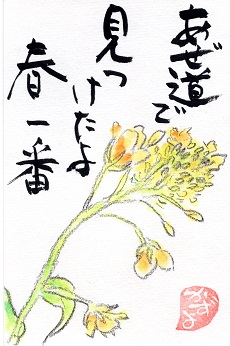 あぜ道で
見つけたよ
春一番